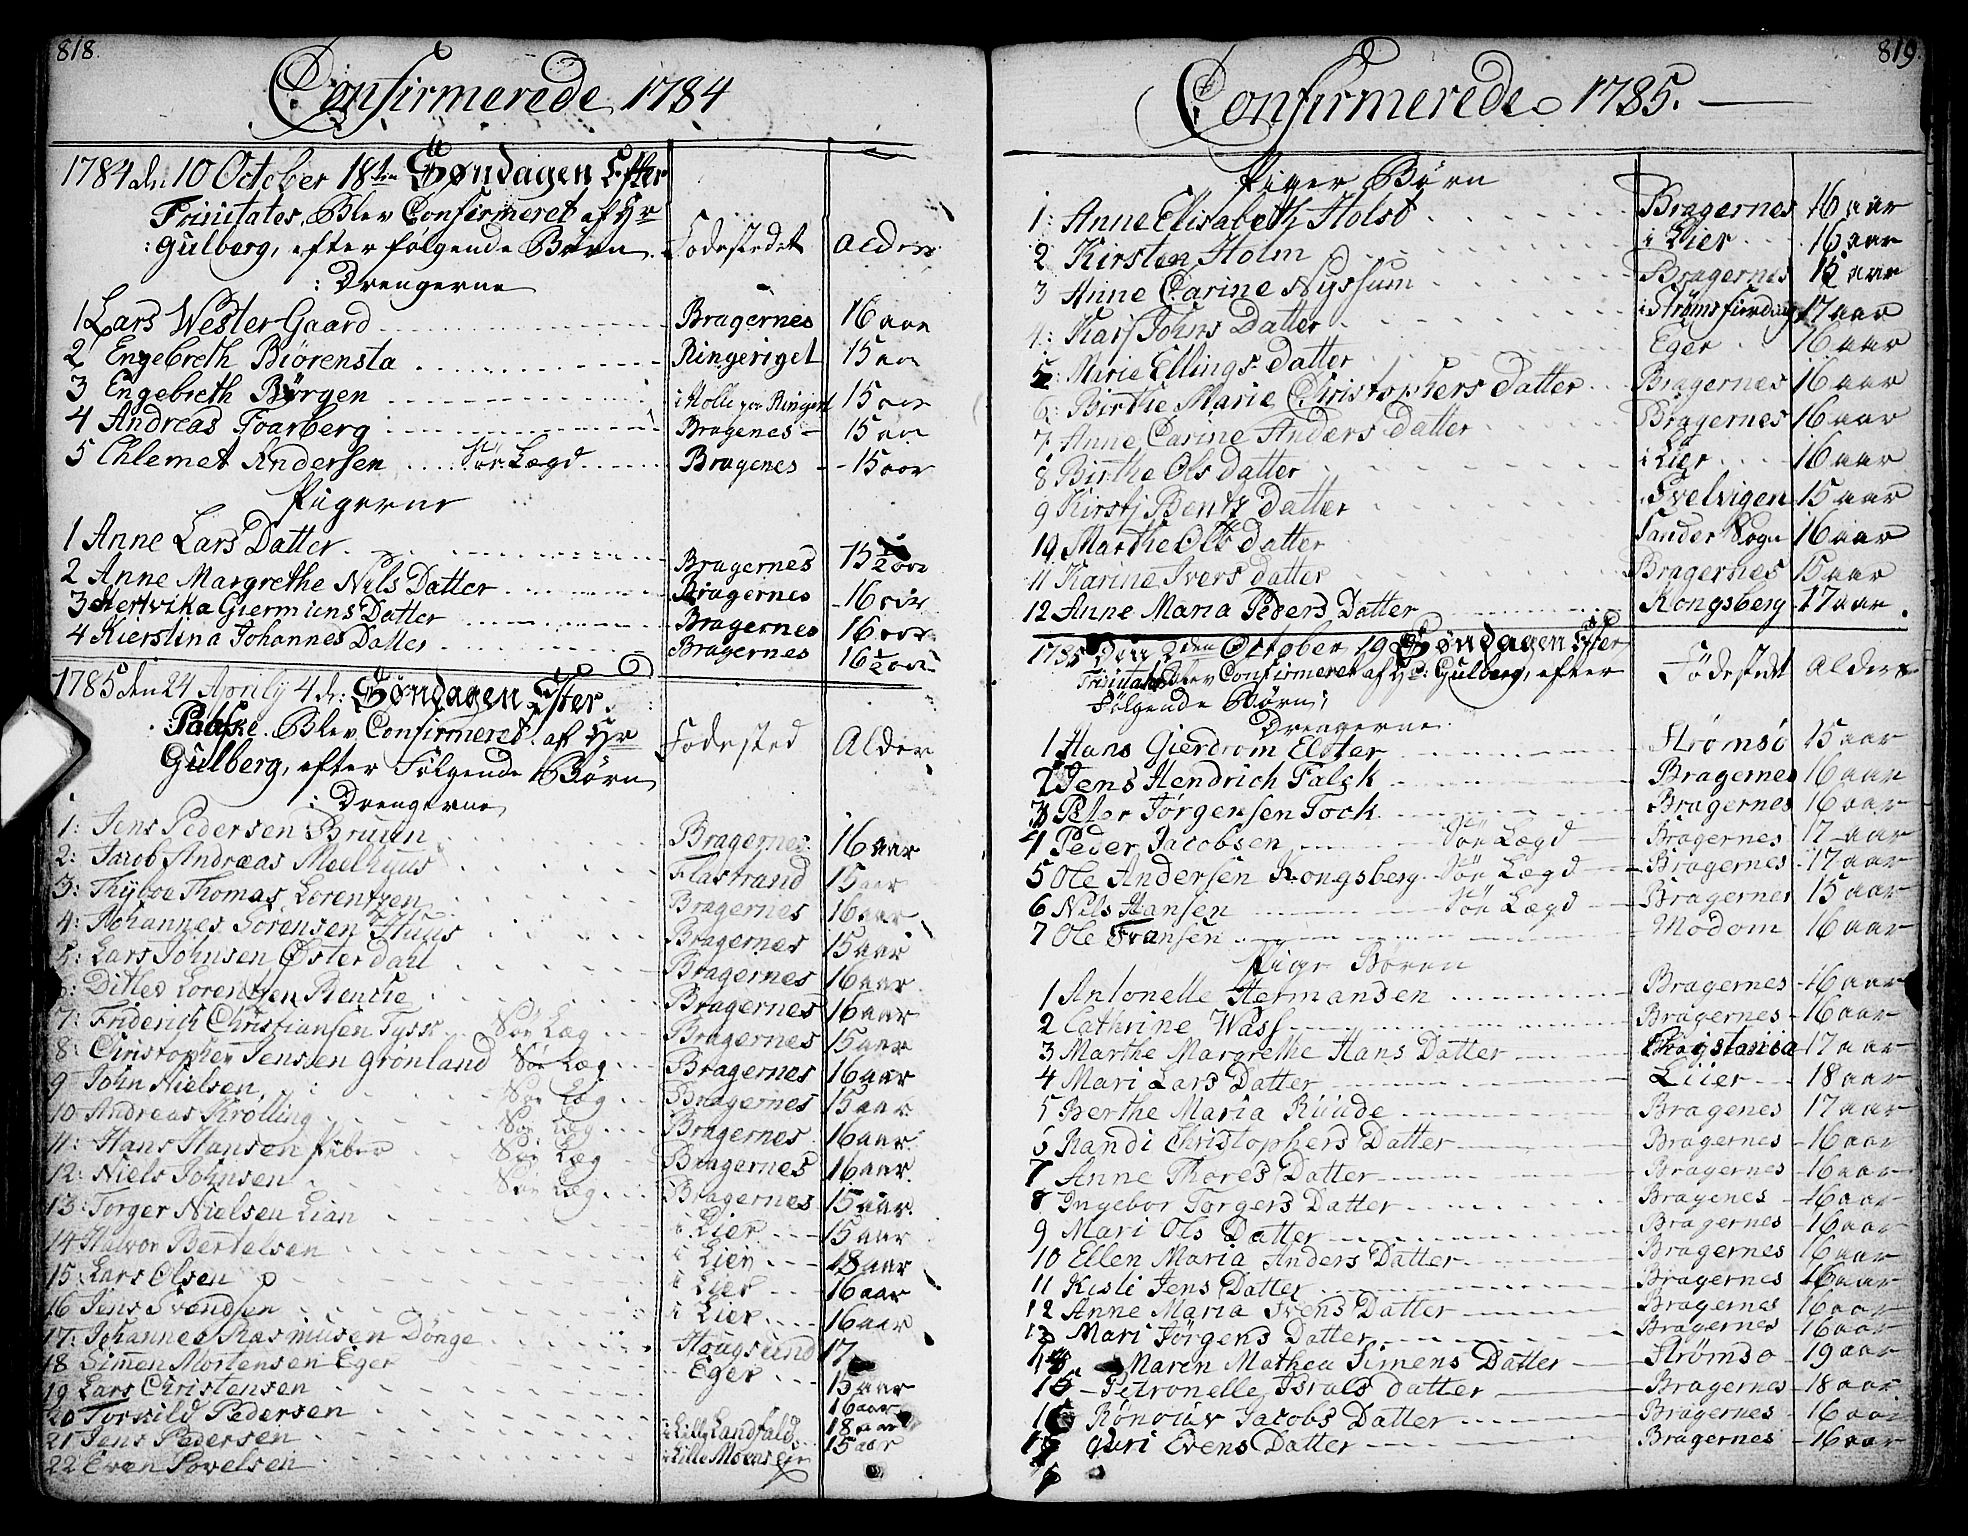 818.
Confirmerede 1784
1784 den 10 October 18den Søndagen Efter
Trinitates, Blev Confirmeret af Hr
Gulberg, efter følgende Børn Fodestedet Alder
: Drengerne
1 Lars Wester Gaard Bragernes 16 aar
2 Engebreth Biørensta Ringeriget 15 aar
3 Engebreth Børgen i Holle paa Ringeri 15 aar
4 Andreas Foarberg Bragenes 15 aar
5 Chlemet Andersen Søe Lægd Bragenes 15 aar
Pigerne
1 Anne Lars Datter Bragernes 15 1/2 aar
2 Anne Margrethe Nils Datter Bragernes 16 aar
3 Hertvika Giermiens Datter Bragernes 16 aar
4 Kierstina Johannes Datter Bragernes 16 1/2 aar
1785 den 24 Aprily 4de: Søndagen Efter
Paaske. Blev Confirmeret af Hr
Gulberg, efter Følgende Børn Fodested Alder
: Drengerne
1: Jens Pedersen Bruun Bragernes 16 aar
2: Jacob Andreas Moelhuus Flastrand 15 aar
3: Thyboe Thomas Lorentzen Bragernes 16 aar
4: Johannes Sørensen Huus Bragernes 15 aar
5: Lars Johnsen Østerdahl Bragernes 16 aar
6: Ditlev Lorentzen Bencke Bragernes 16 aar
7: Friderich Christiansen Tyss Søe Læg Bragernes 15 aar
8: Christopher Jensen Grønland Søe Læg Bragernes 16 aar
9 John Nielsen Søe Læg Bragernes 15 aar
10 Andreas Krølling Søe Læg Bragernes 16 aar
11: Hans Hansen Fiber Søe Læg Bragernes 16 aar
12: Niels Johnsen Søe Læg Bragernes 15 aar
13: Torger Nielsen Lian i Lier 15 aar
14 Halvor Bertelsen i Lier 18 aar
15: Lars Olsen i Lier 16 aar
16 Jens Svendsen i Lier 16 aar
17: Johannes Rasmusen Dønge Hougsund 17
18 Simen Mortensen Eger Eger 15 aar
19 Lars Christensen 16 aar
20 Torkild Pedersen 18 aar
21 Jens Pedersen i Lille Landfald 15 aar
22 Even Sovelsen i Lille Moens
819.
Confirmerede 1785.
Piger Børn
1: Anne Elisabeth Holst Bragernes 16 aar
2 Kirsten Holm i Lier 16 aar
3 Anne Carine Nyssum Bragernes 15 aar
4: Kari Johns Datter i Strømsfierding 17 aar
5: Marie Ellings Datter Eger 16 aar
6: Birthe Marie Christophers Datter Bragernes 16 aar
7 Anne Carine Anders Datter Bragernes 16 aar
8 Birthe Ols Datter i Lier 16 aar
9 Kirstj Bents Datter Svelvigen 15 aar
10 Marthe Ols Datter Sander Sogn 16 aar
11 Karine Ivers Datter Bragernes 15 aar
12 Anne Maria Peders Datter Kongsberg 17 aar
1785 Den 2den October 19 Søndagen Efter
Trinitatis Blev Confirmeret af Hr: Gulberg, efter Fødested Alder
Følgende Børn;
Drengerne
1 Hans Gierdrom Elster Strømsö 15 aar
2 Jens Hendrich Falck Bragernes 16 aar
3 Peter Jørgensen Tock Bragernes 16 aar
4 Peder Jacobsen Søe Lægd Bragernes 17 aar
5 Ole Andersen Kongsberg Søe Lægd Bragernes 17 aar
6 Nils Hansen Søe Lægd Bragernes 15 aar
7 Ole Fransen Modom 16 aar
Piger Børen
1 Antonelle Hermansen Bragernes 16 aar
2 Cathrine Wass Bragernes 16 aar
3 Marthe Margrethe Hans Datter Christania 17 aar
4 Mari Lars Datter Liier 18 aar
5 Berthe Maria Ruude Bragenes 17 aar
6 Randi Christophers Datter Bragernes 16 aar
7 Anne Thores Datter Bragernes 16 aar
8 Ingebor Torgers Datter Bragenes 16 aar
9 Mari Ols Datter Bragernes 16 aar
10 Ellen Maria Anders Datter Bragernes 16 aar
11 Kisli Jens Datter Bragernes 16 aar
12 Anne Maria Ivens Datter Bragernes 16 aar
13 Mari Jørgens Datter Bragernes 16 aar
14 Maren Mathea Simens Datter Strømso 19 aar
15 Petronelle Israels Datter Bragernes 18 aar
16 Rønoiav Jacobs Datter Bragernes 16 aar
17 Guri Evens Datter Bragernes 16 aar